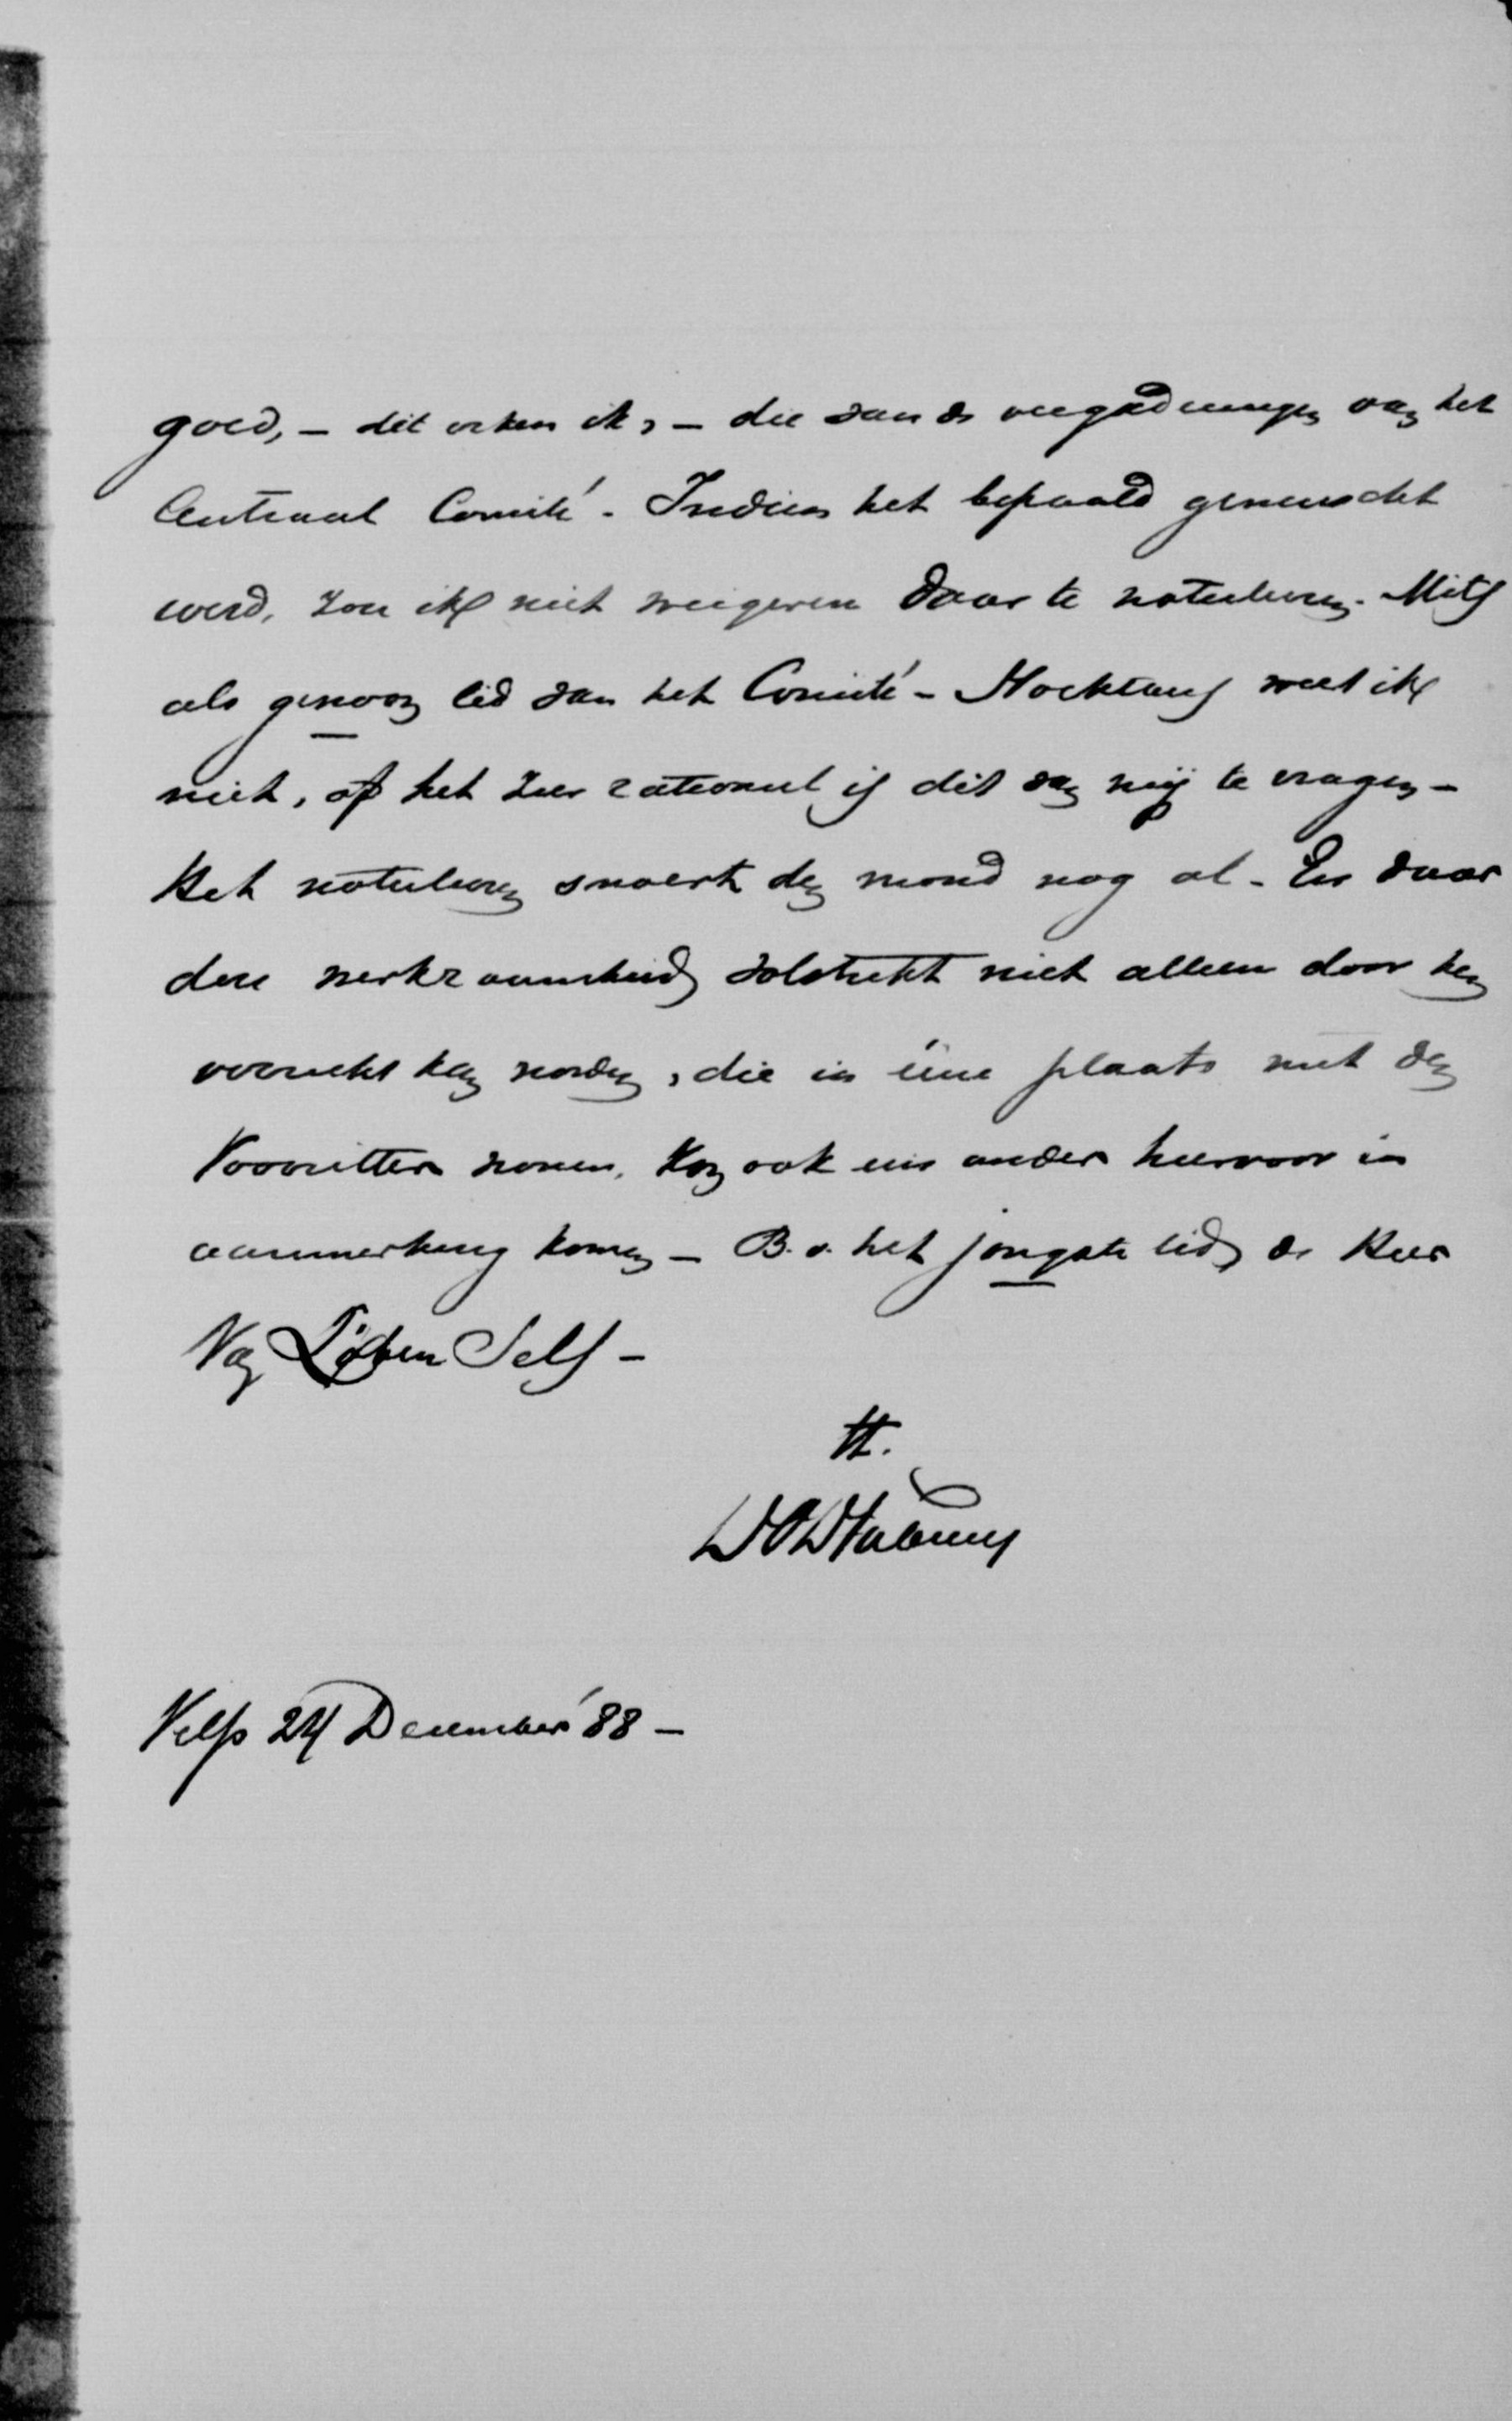 goed, – dit erken ik, – die van de vergaderingen van het
Centraal Comité – Indien het bepaald gewenscht
werd, zou ik niet weigeren daar te notuleren. Mits
als gewoon lid van het Comité – Hocktans weet ik
niet, of het zeer rationeel is dit van mij te vragen –
Het notuleren snoert den mond nog al – En daar
deze werkzaamheid volstrekt niet alleen door hen
verricht kan worden, die in eene plaats met den
Voorzitter wonen, kon ook een ander hiervoor in
aanmerking komen – B.v. het jongste lid, de Heer
Van Löben Sels –
tt.
Velp 24 December '88 –